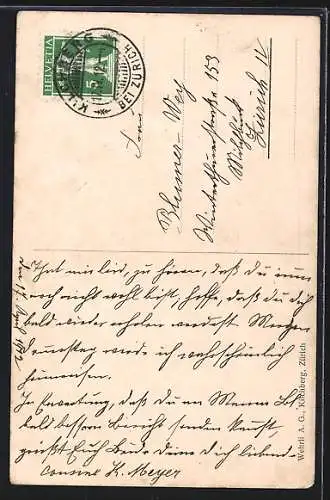 HELVETIA
5
KILCHBERG
BEI ZÜRICH
Frau
Blumer-Wey
Winterthurerstraße 153
Zürich IV
Wehrli A. G., Kilchberg, Zürich
Thut mir leid, zu hören, daß du immer
noch nicht wohl bist, hoffe, daß du dich
bald wieder erholen werdest. Morgen
Dienstag werde ich wahrscheinlich
heimreisen.
In Erwartung, daß du an Mama
bald bessern Bericht senden kannst,
grüßt Euch Beide deine dich liebende
Cousine K. Meyer